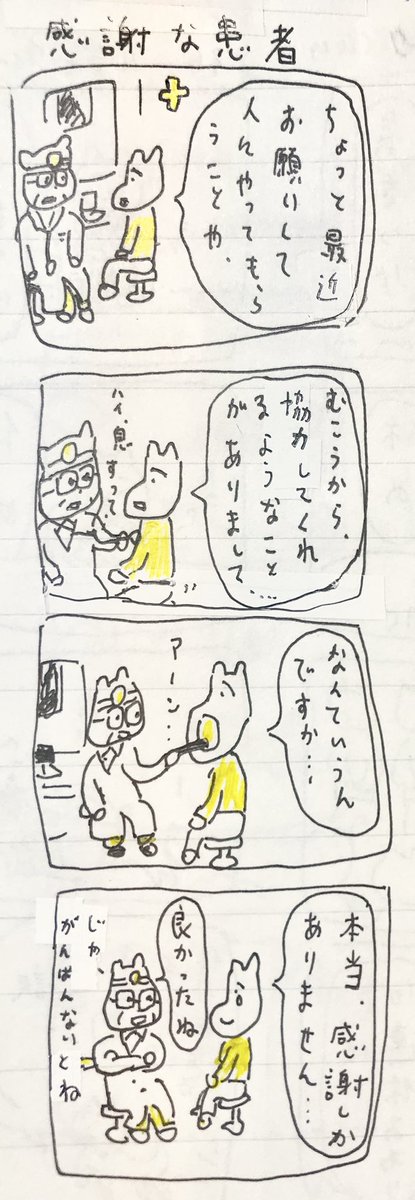 感謝な患者
ちょっと最近
お願いして
人にやってもら
うことや、
むこうから、
協力してくれ
るようなこと
がありまして…
ハイ、息
すって
なんていうん
ですか…
アーン…
本当、感謝しか
ありません…
良かったね
じゃ、
がんばんないとね